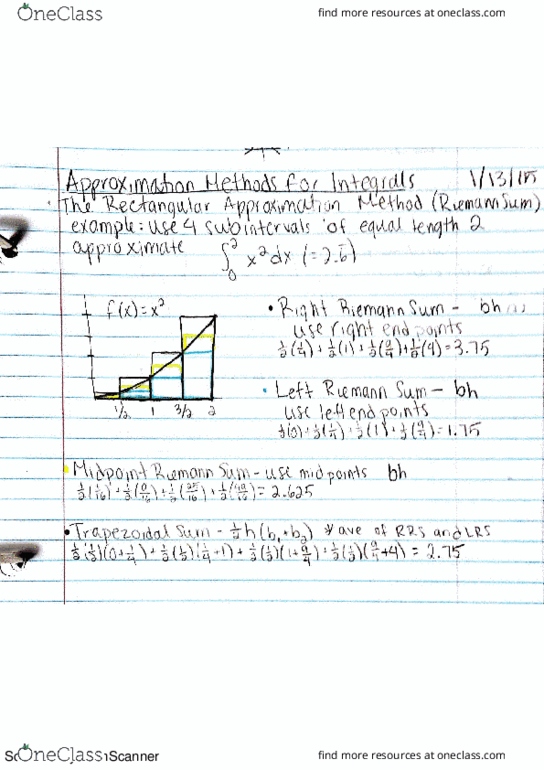 OneClass
find more resources at oneclass.com
Approximation Methods for Integrals 1/13/15
The Rectangular Approximation Method (Riemann Sum)
example: use 4 subintervals of equal length 2
approximate ∫₀² x²dx (=2.6̅)
f(x)=x²
1/2 1 3/2 2
• Right Riemann Sum - bh
use right endpoints
½(¼)+½(1)+½(9/4)+½(4)=3.75
• Left Riemann Sum - bh
use left endpoints
½(0)+½(¼)+½(1)+½(9/4)=1.75
• Midpoint Riemann Sum - use midpoints bh
½(1/16)+½(9/16)+½(25/16)+½(49/16)=2.625
• Trapezoidal Sum - ½h(b₁+b₂) * ave of RRS and LRS
½(½)(0+¼)+½(½)(¼+1)+½(½)(1+9/4)+½(½)(9/4+4)=2.75
OneClass
Scanner
find more resources at oneclass.com